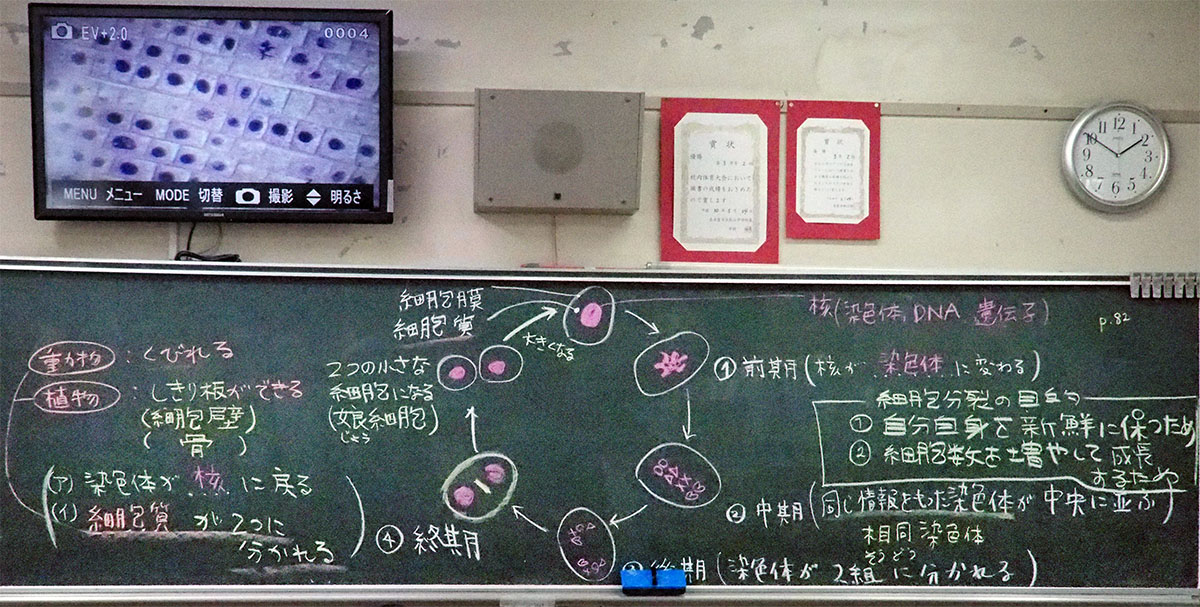 EV+2.0
0004
MENU メニュー MODE 切替 撮影 明るさ
賞状
優勝
校内体育大会において
賞状
10
11
12
1
2
3
4
5
6
7
8
9
細胞膜
細胞質
核(染色体、DNA 遺伝子)
p.82
大きくなる
2つの小さな
細胞になる
(娘細胞)
じょう
動物:くびれる
植物:しきり板ができる
(細胞壁)
(骨)
(ア)染色体が核に戻る
(イ)細胞質が2つに
分かれる
④終期
①前期(核が染色体に変わる)
細胞分裂の目的
①自分自身を新鮮に保つため
②細胞数を増やして成長
するため
②中期(同じ情報をもった染色体が中央に並ぶ)
相同染色体
そうどう
後期(染色体が2組に分かれる)